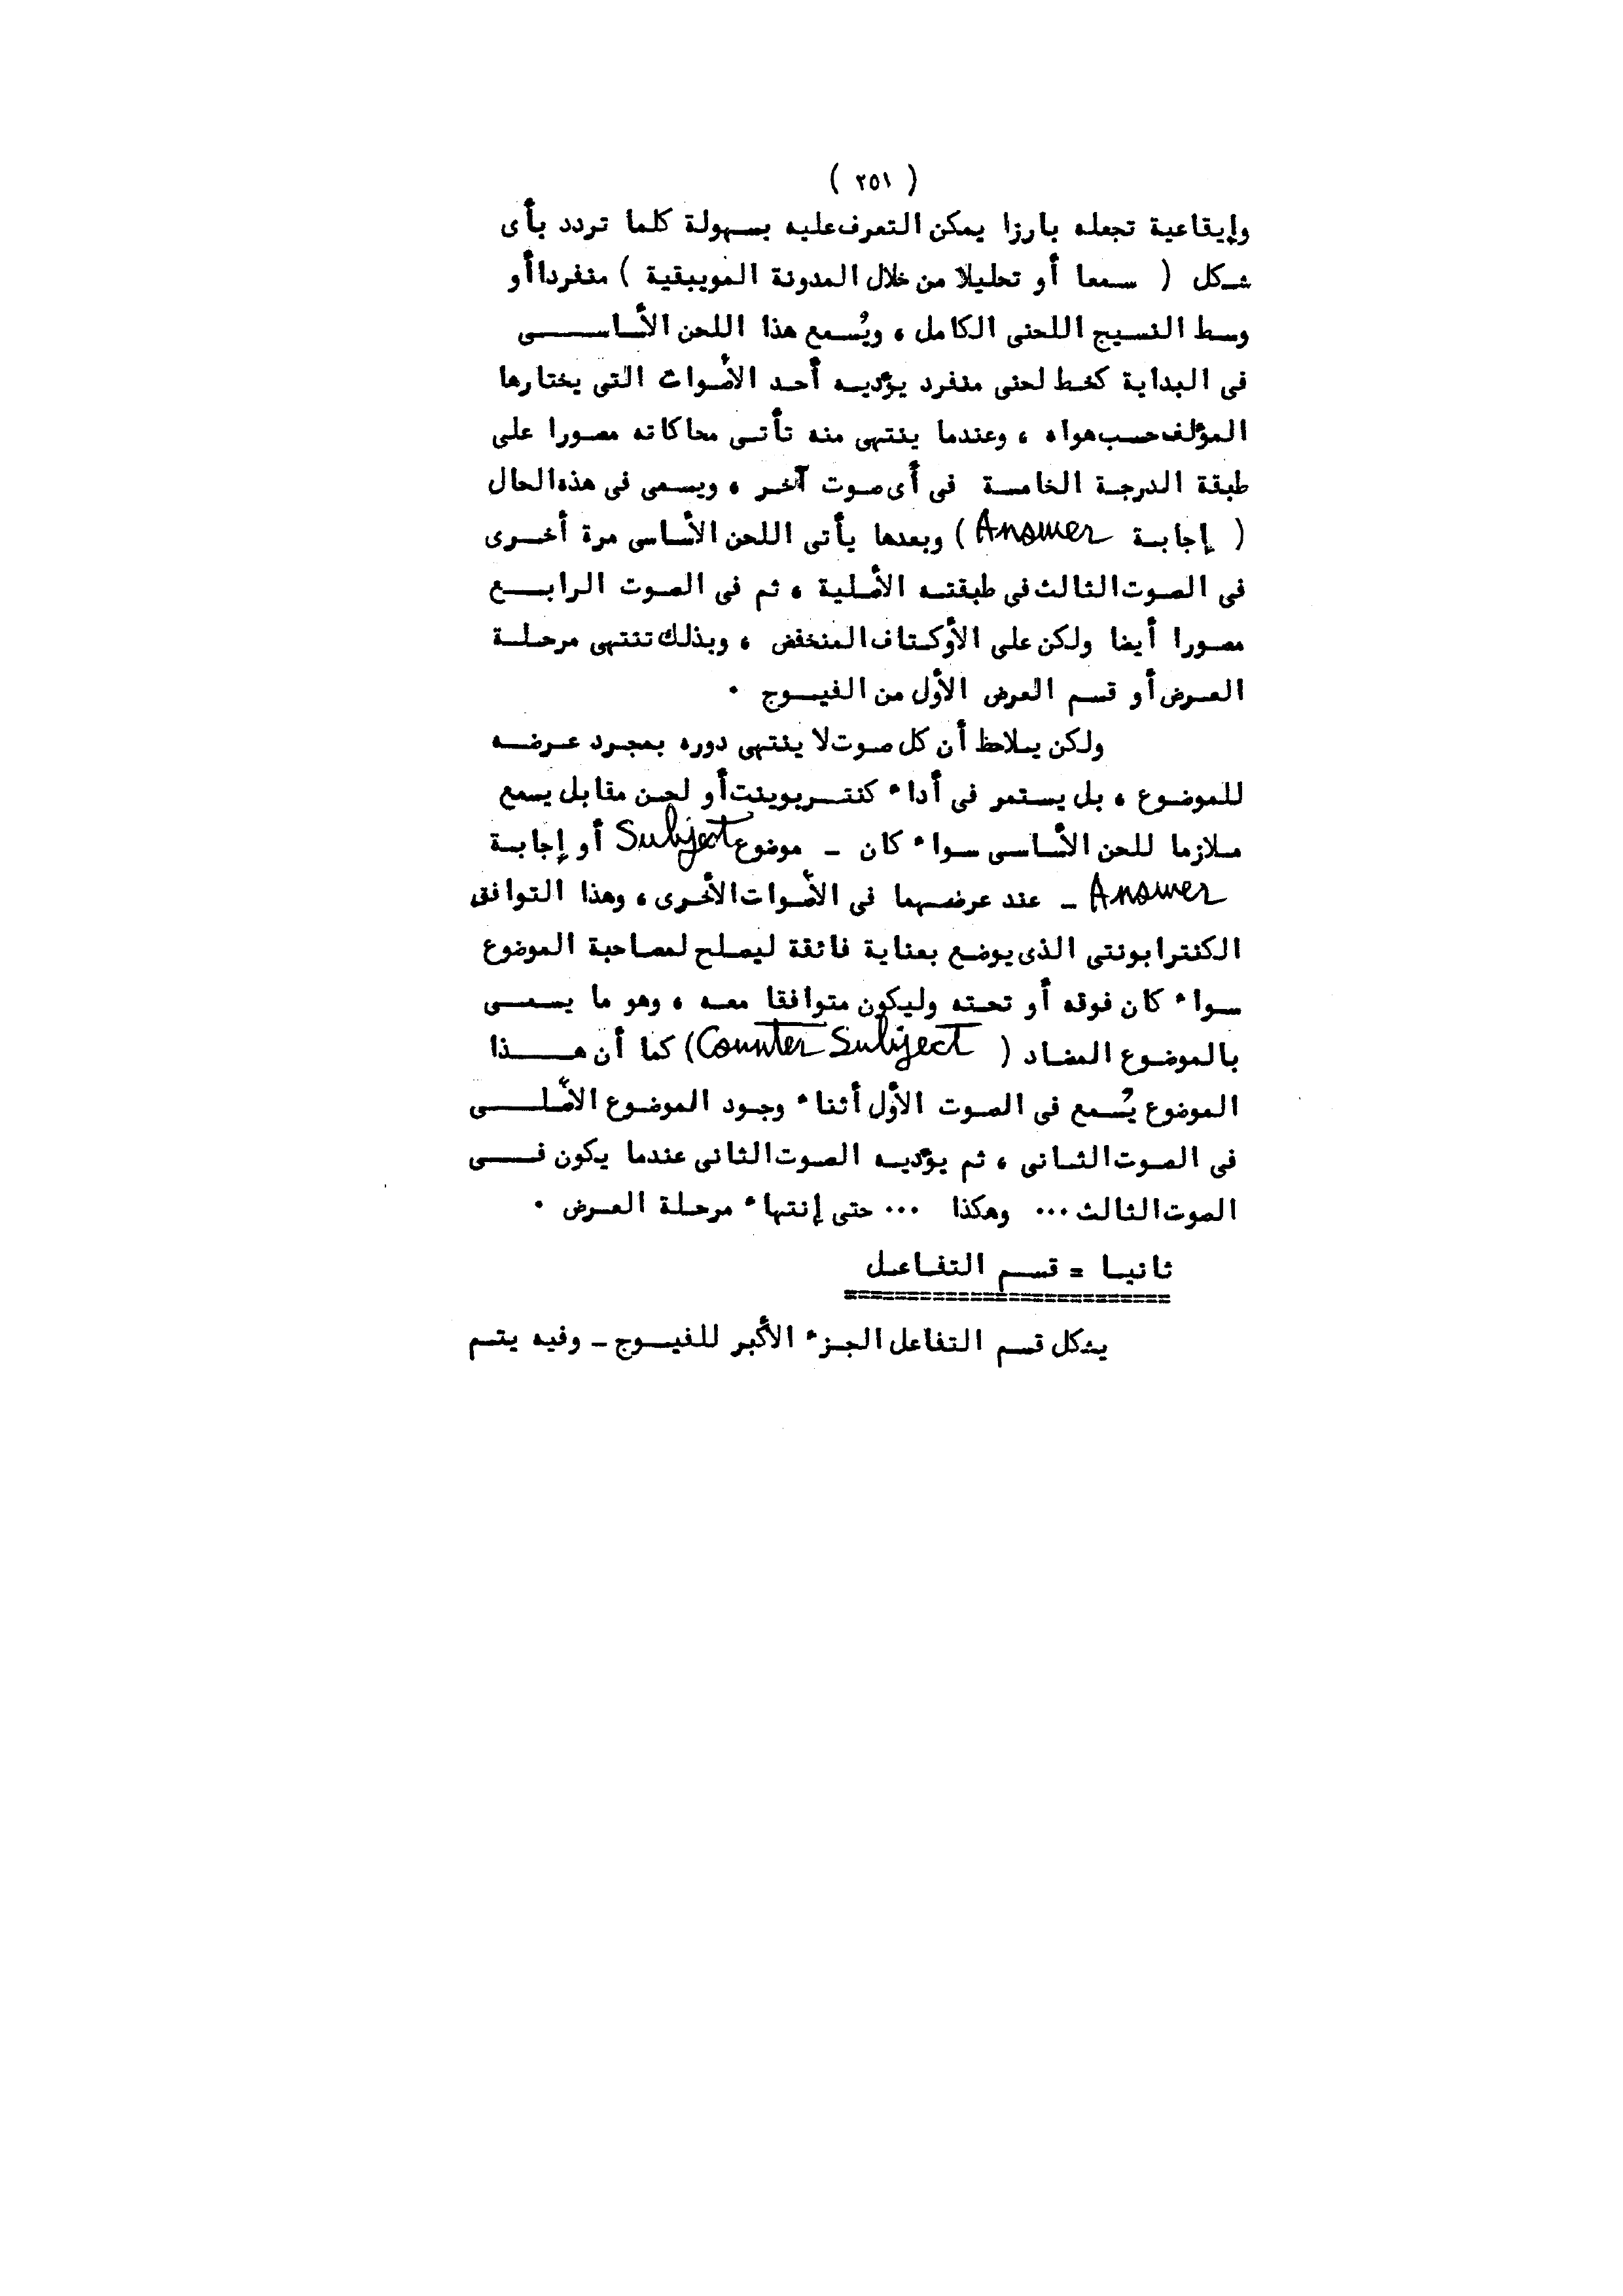 ( ٢٥١ )
وإيقاعية تجعله بارزا يمكن التعرف عليه بسهولة كلما تردد بأى
شكل ( سمعا أو تحليلا من خلال المدونة الموسيقية ) منفردا أو
وسط النسيج اللحنى الكامل ، ويُسمع هذا اللحن الأساسى
فى البداية كخط لحنى منفرد يؤديه أحد الأصوات التى يختارها
المؤلف حسب هواه ، وعندما ينتهى منه تأتى محاكاته مصورا على
طبقة الدرجة الخامسة فى أى صوت آخر ، ويسمى فى هذه الحال
( إجابة Answer ) وبعدها يأتى اللحن الأساسى مرة أخرى
فى الصوت الثالث فى طبقته الأصلية ، ثم فى الصوت الرابع
مصورا أيضا ولكن على الأوكتاف المنخفض ، وبذلك تنتهى مرحلة
العرض أو قسم العرض الأول من الفيوج .
ولكن يلاحظ أن كل صوت لا ينتهى دوره بمجرد عرضه
للموضوع ، بل يستمر فى أداء كنتربوينت أو لحن مقابل يسمع
ملازما للحن الأساسى سواء كان - موضوع Subject أو إجابة
Answer - عند عرضهما فى الأصوات الأخرى ، وهذا التوافق
الكنترابونتى الذى يوضع بعناية فائقة ليصلح لمصاحبة الموضوع
سواء كان فوقه أو تحته وليكون متوافقا معه ، وهو ما يسمى
بالموضوع المضاد ( Counter Subject ) كما أن هذا
الموضوع يُسمع فى الصوت الأول أثناء وجود الموضوع الأصلى
فى الصوت الثانى ، ثم يؤديه الصوت الثانى عندما يكون فى
الصوت الثالث ... وهكذا ... حتى إنتهاء مرحلة العرض .
ثانيا = قسم التفاعل
يشكل قسم التفاعل الجزء الأكبر للفيوج - وفيه يتم